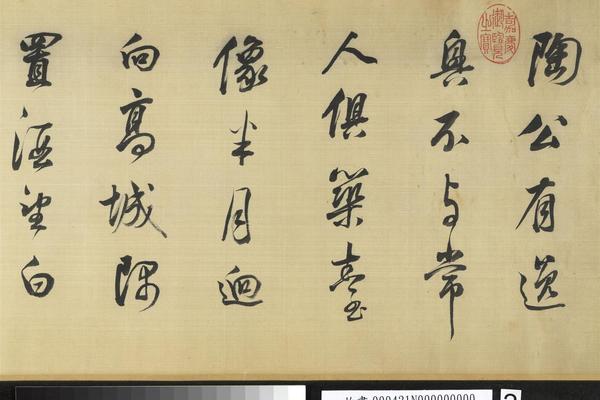 陶公有逸
興不与常
人俱築臺
像半月逈
向高城隅
置酒望白
嘉慶御覽之寶
000431N000000000